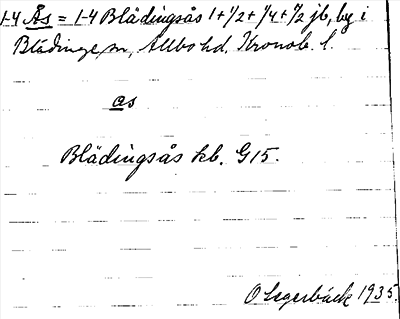 1-4 Ås = 1-4 Blädingsås 1+1/2+1/4+1/2 jb, by i
Blädinge sn, Allbo hd, Kronob. l.
as
Blädingsås kb. G15.
O Segerbäck 1935.